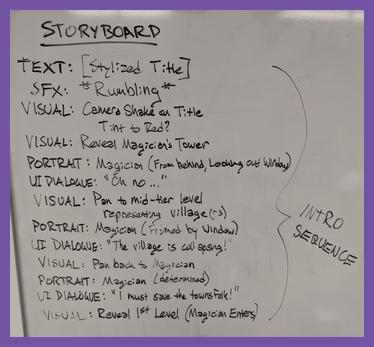 STORYBOARD
TEXT: [Stylized Title]
SFX: *Rumbling*
VISUAL: Camera Shake on Title
Tint to Red?
VISUAL: Reveal Magician's Tower
PORTRAIT: Magician (From behind, Looking out Window)
UI DIALOGUE: "Oh no..."
VISUAL: Pan to mid-tier level
representing village(-s)
PORTRAIT: Magician (Framed by Window)
UI DIALOGUE: "The village is collapsing!"
VISUAL: Pan back to Magician
PORTRAIT: Magician (determined)
UI DIALOGUE: "I must save the townsfolk!"
VISUAL: Reveal 1st Level (Magician Enters)
INTRO
SEQUENCE